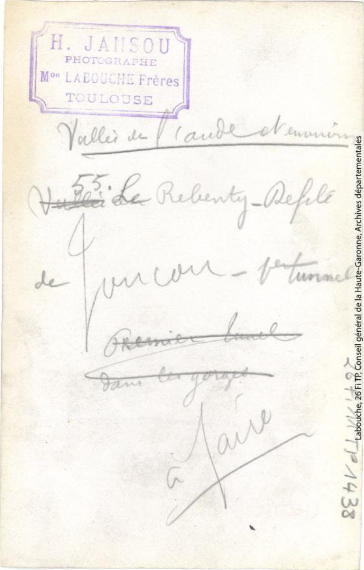 H. JANSOU
PHOTOGRAPHE
Mon LABOUCHE Frères
TOULOUSE
Vallée de l'Aude et environs
55.
Vallée Le Rebenty - Défilé
de Joucou - 1er tunnel
Premier tunnel
dans les gorges
à faire
26 FI TP 1438
Labouche, 26 FI TP, Conseil général de la Haute-Garonne, Archives départementales